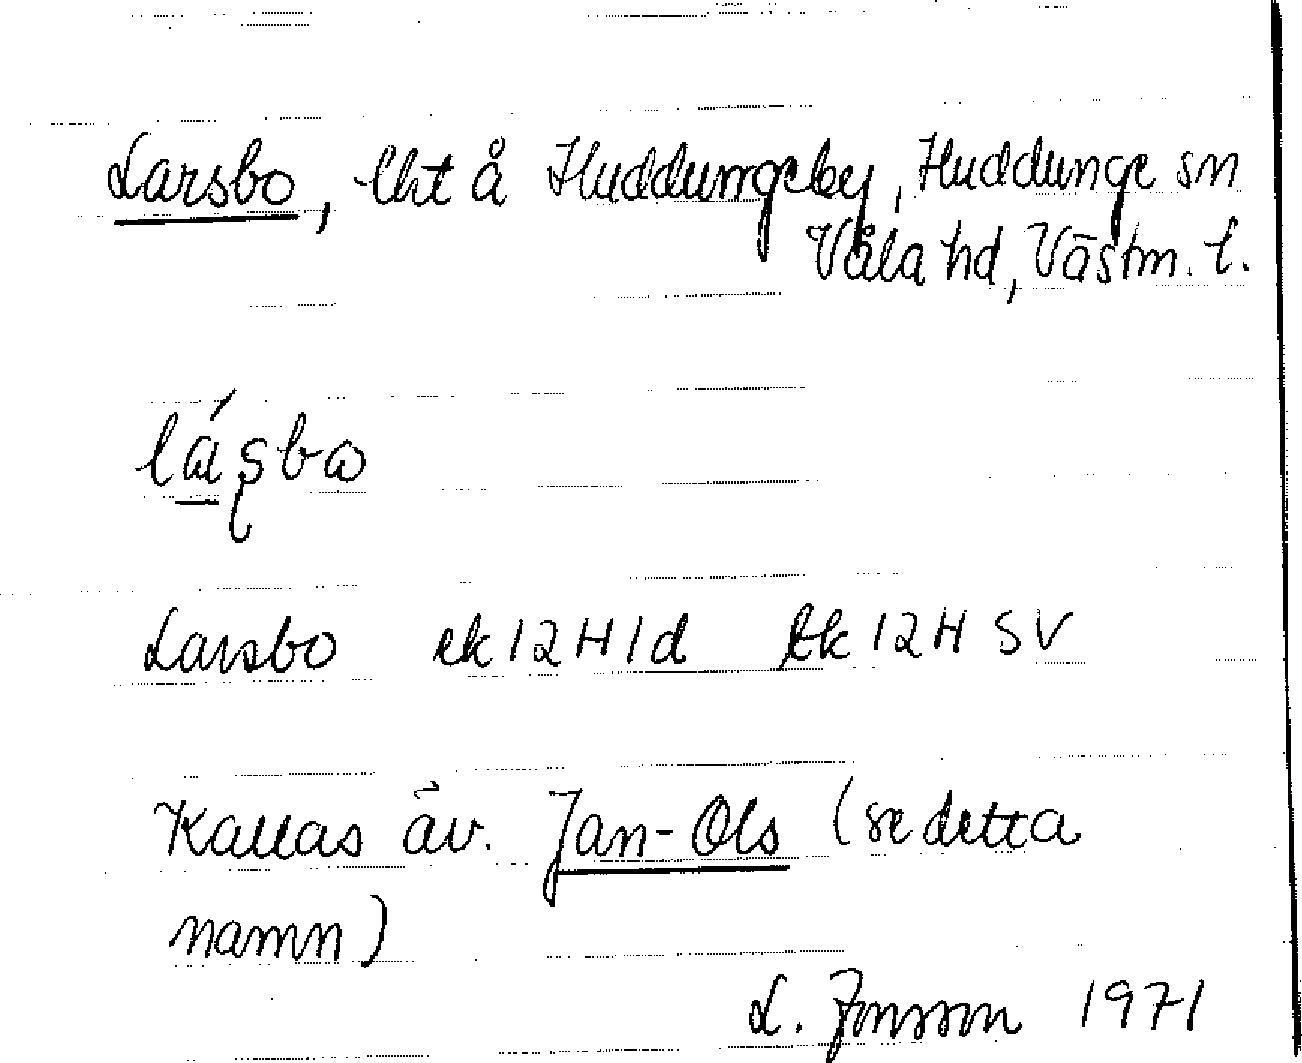 Larsbo, lht å Huddungeby, Huddunge sn
Våla hd, Västm. l.
lá̱ʂbω
Larsbo ek 12H1d tk 12H SV
Kallas äv. Jan-Ols (se detta
namn)
L. Jonsson 1971